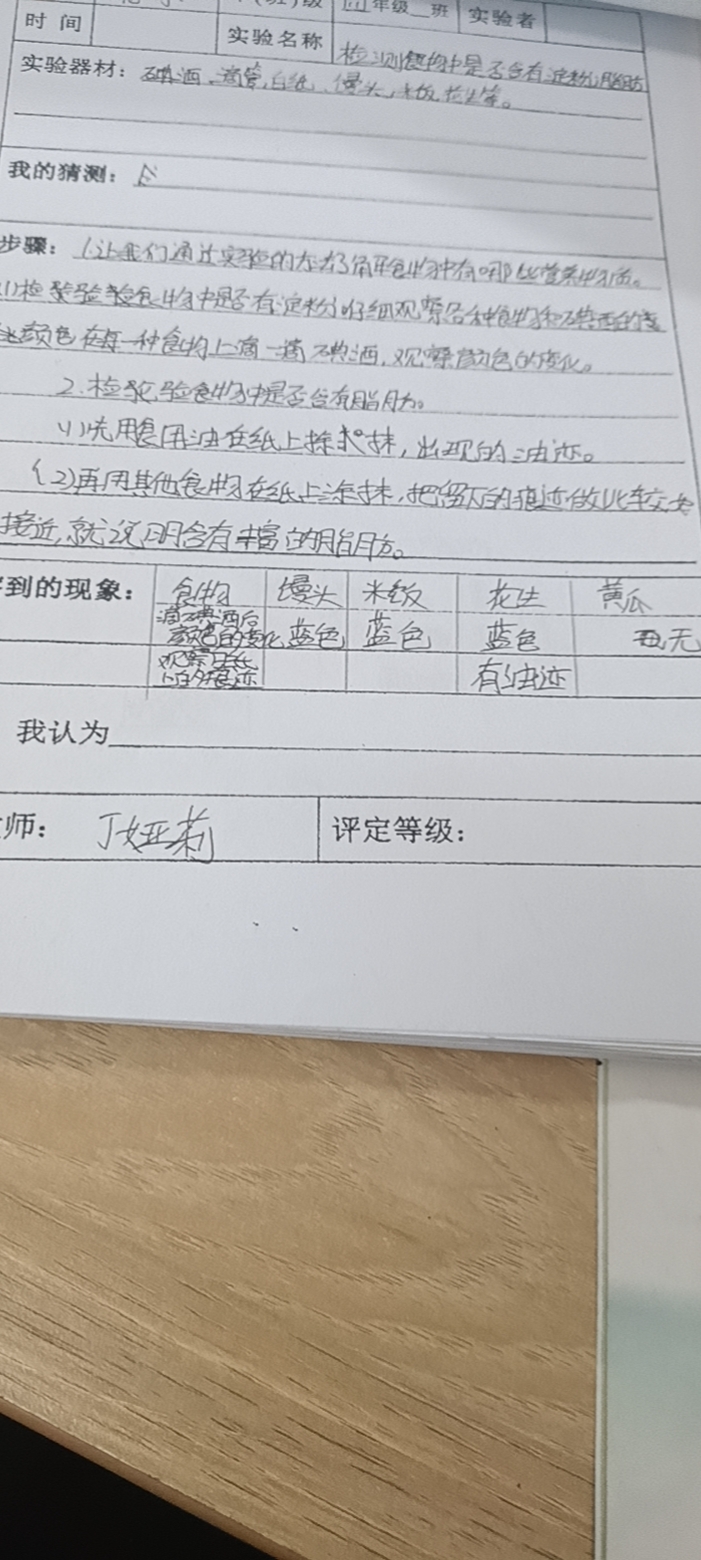 年级 班 实验者
时 间 实验名称 检测食物中是否含有淀粉、脂肪
实验器材：碘酒、滴管、白纸、馒头、米饭、花生等。
我的猜测：
步骤：1让我们通过实验的方式了解食物中有哪些营养物质。
(1)检 验食物中是否有淀粉 仔细观察各种食物和碘酒的
颜色在每一种食物上滴一滴碘酒，观察颜色的变化。
2.检验食物中是否含有脂肪。
(1)先用食用油在纸上 抹，出现的油迹。
(2)再用其他食物在纸上涂抹，把留下的痕迹做比较
接近，就说明含有丰富的脂肪。
到的现象： 食物 馒头 米饭 花生 黄瓜
滴碘酒后
颜色的变化 蓝色 蓝色 蓝色 无
观察白纸
上的痕迹 有油迹
我认为
师： 丁娅莉 评定等级：